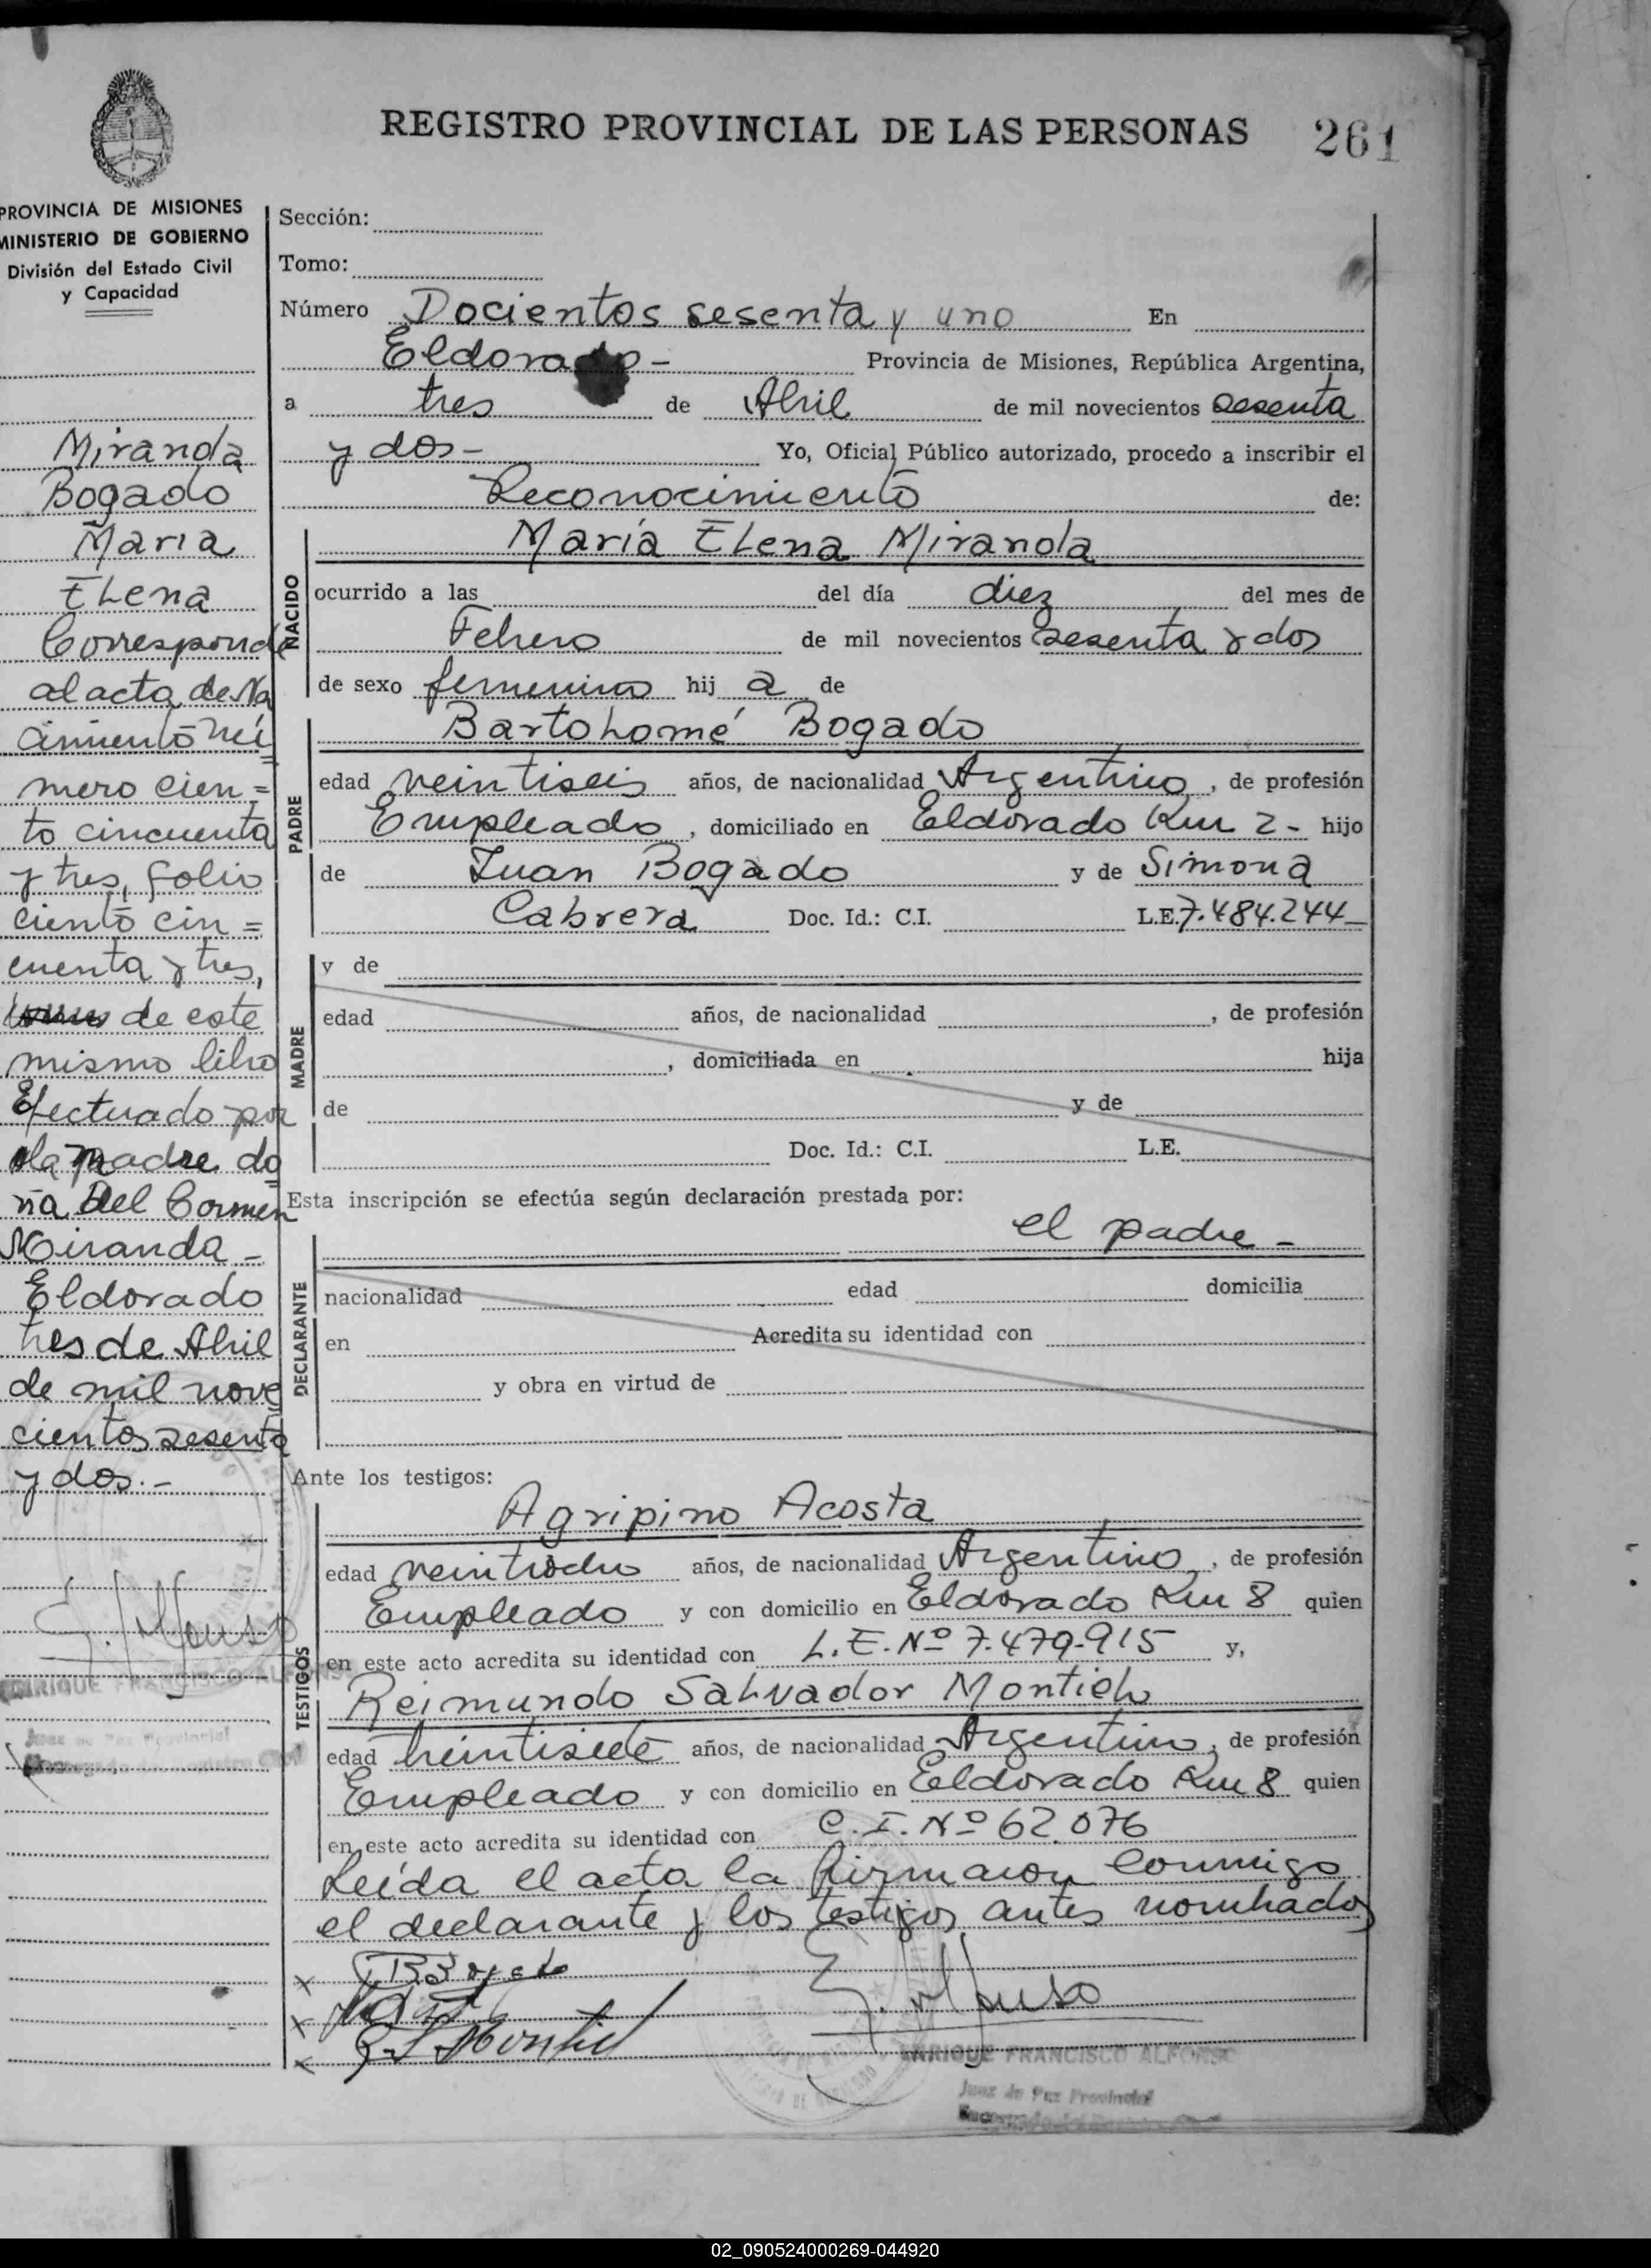 REGISTRO PROVINCIAL DE LAS PERSONAS 261
PROVINCIA DE MISIONES
MINISTERIO DE GOBIERNO
División del Estado Civil
y Capacidad
Miranda
Bogado
Maria
Elena
Corresponde
al acta de Na
cimiento nú
mero cien=
to cincuenta
y tres, folio
ciento cin=
cuenta y tres,
de este
mismo libro
Efectuado por
la madre do
ña Del Carmen
Miranda -
Eldorado
tres de Abril
de mil nove
cientos sesenta
y dos.-
ENRIQUE FRANCISCO ALFONSO
Juez de Paz Provincial
Encargado del Registro Civil
Sección:
Tomo:
Número Docientos sesenta y uno En
Eldorado - Provincia de Misiones, República Argentina,
a tres de Abril de mil novecientos sesenta
y dos - Yo, Oficial Público autorizado, procedo a inscribir el
Reconocimiento de:
María Elena Miranda
NACIDO
ocurrido a las del día diez del mes de
Febrero de mil novecientos sesenta y dos
de sexo femenino hij a de
PADRE
Bartolomé Bogado
edad veintiseis años, de nacionalidad Argentino, de profesión
Empleado, domiciliado en Eldorado Km 2 - hijo
de Juan Bogado y de Simona
Cabrera Doc. Id.: C.I. L.E. 7.484.244 -
MADRE
y de
edad años, de nacionalidad , de profesión
, domiciliada en hija
de y de
Doc. Id.: C.I. L.E.
Esta inscripción se efectúa según declaración prestada por:
el padre -
DECLARANTE
nacionalidad edad domicilia
en Acredita su identidad con
y obra en virtud de
Ante los testigos:
TESTIGOS
Agripino Acosta
edad veintiocho años, de nacionalidad Argentino, de profesión
Empleado y con domicilio en Eldorado Km 8 quien
en este acto acredita su identidad con L.E. Nº 7.479.915 y,
Reimundo Salvador Montiel
edad veintisiete años, de nacionalidad Argentino, de profesión
Empleado y con domicilio en Eldorado Km 8 quien
en este acto acredita su identidad con C.I. Nº 62.076
Leída el acta la firmaron conmigo
el declarante y los testigos antes nombrados
ENRIQUE FRANCISCO ALFONSO
Juez de Paz Provincial
02_090524000269-044920